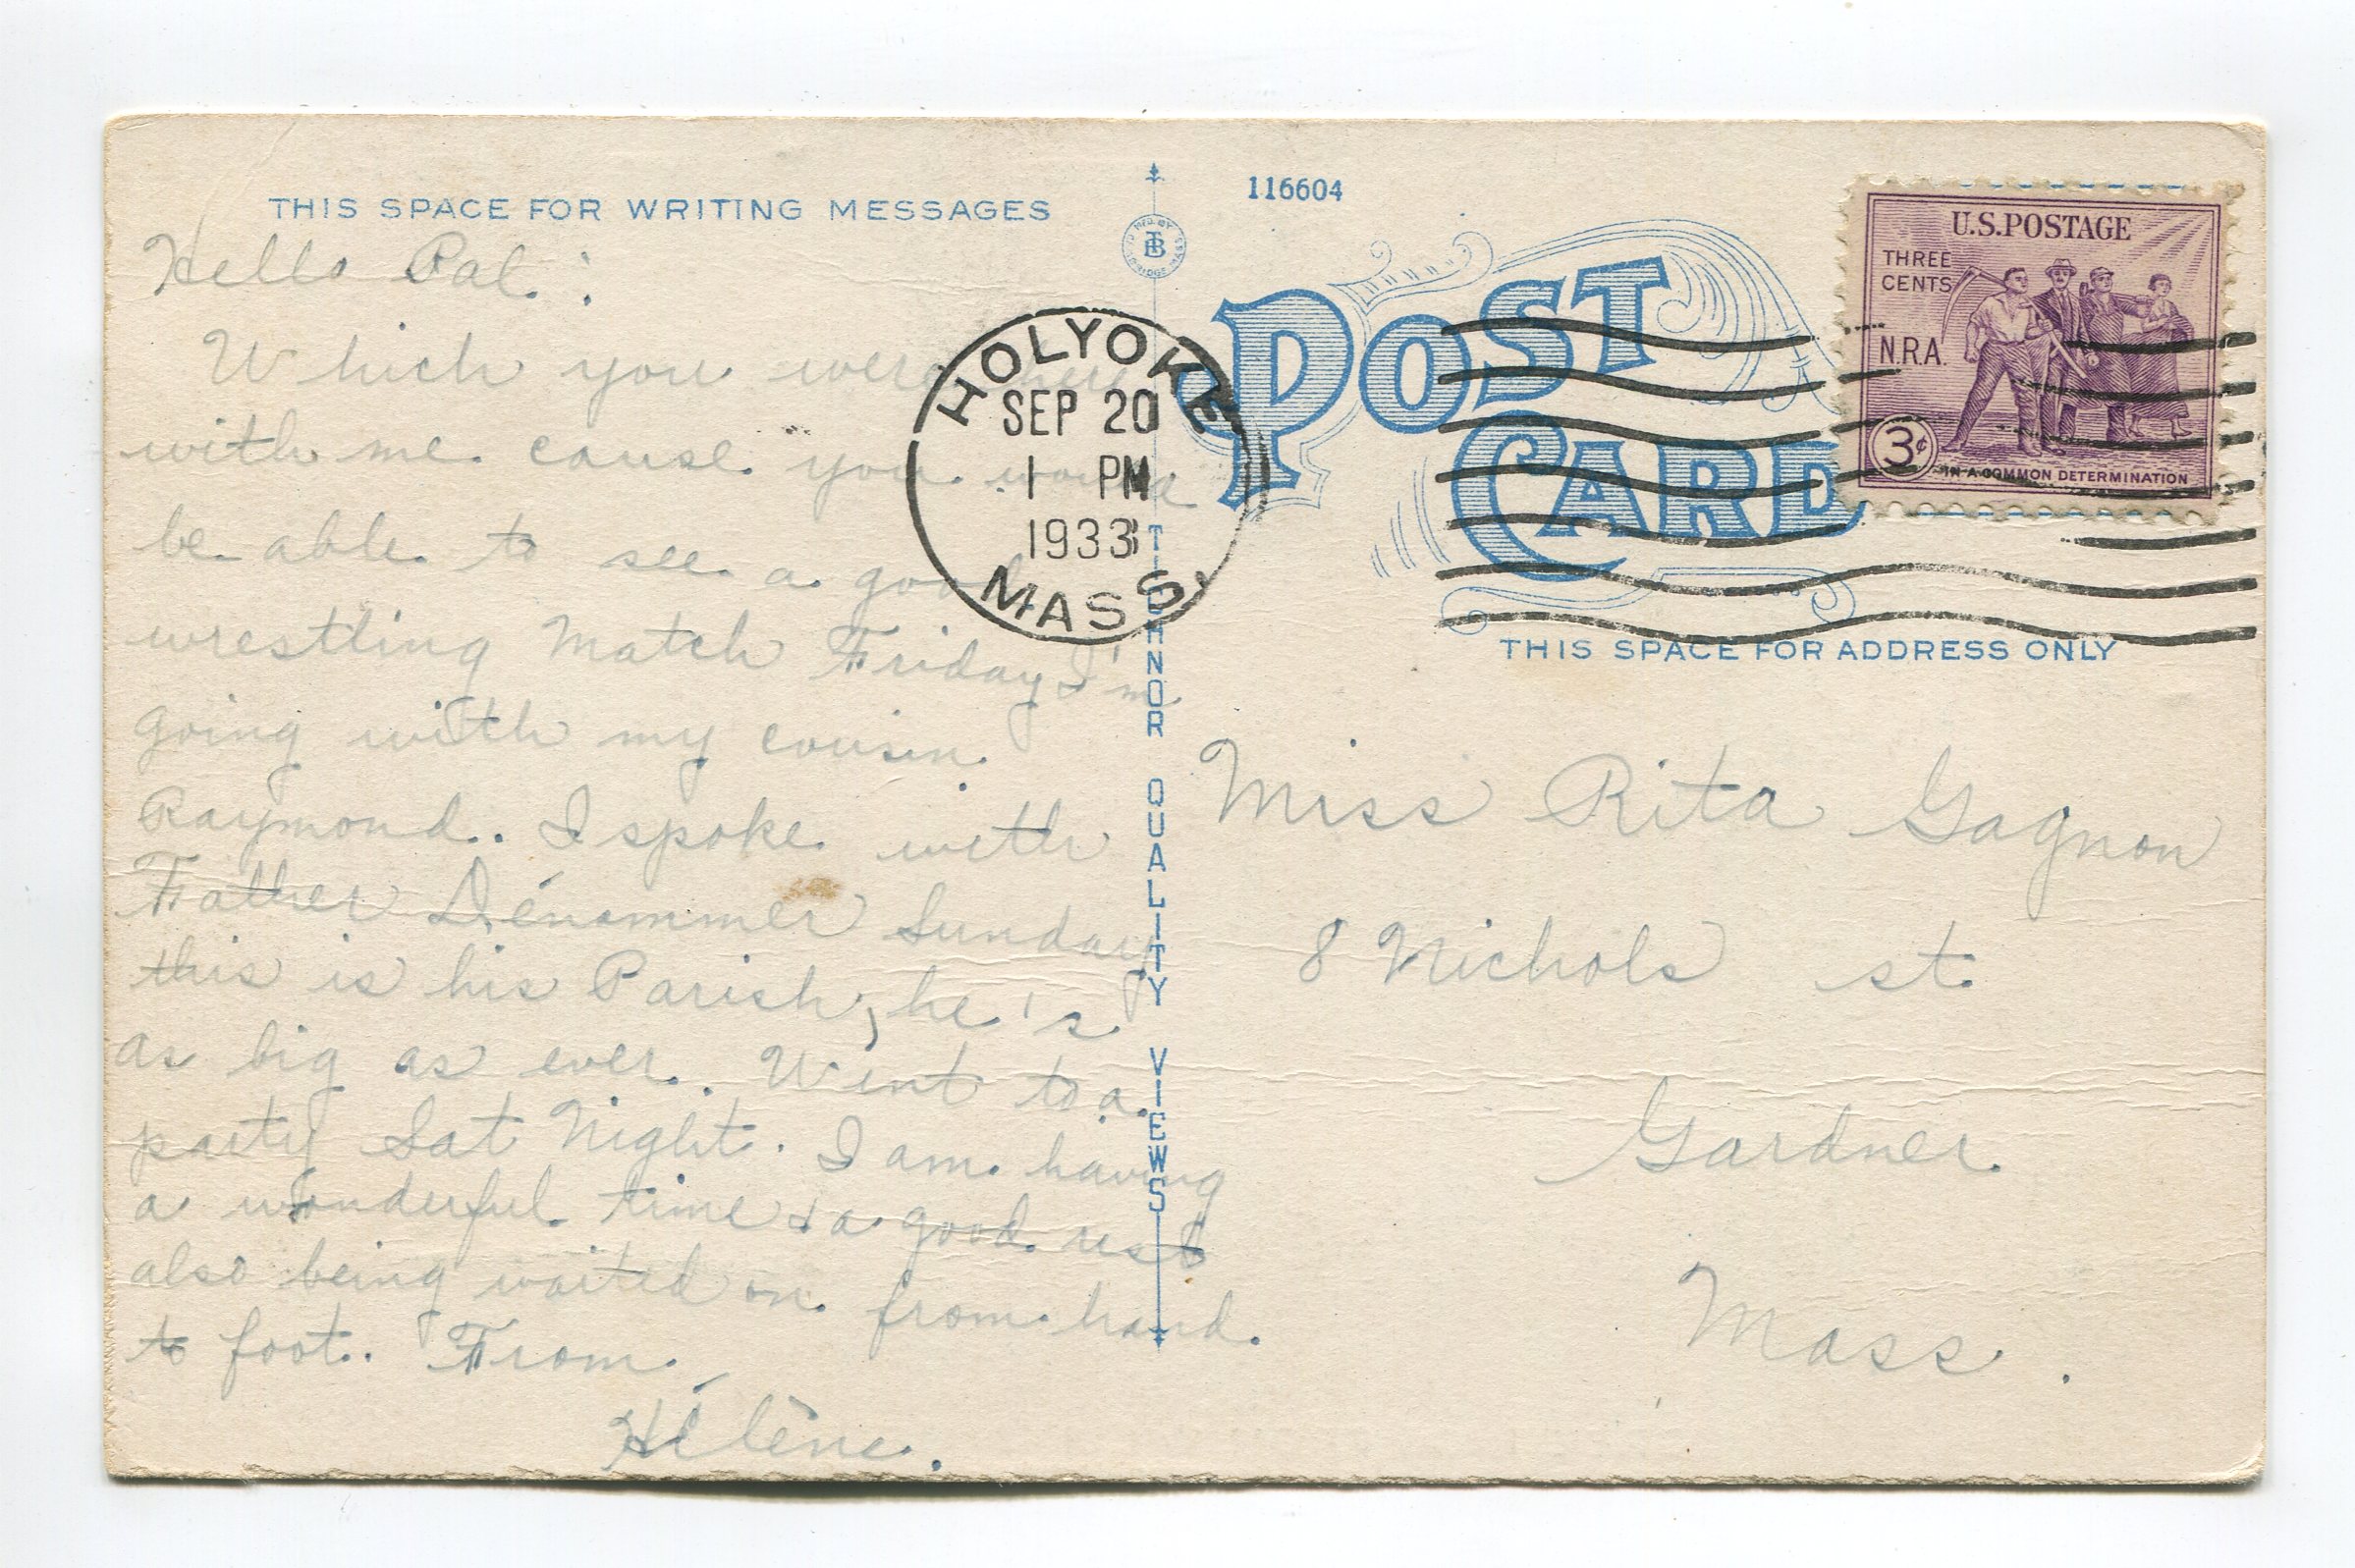 THIS SPACE FOR WRITING MESSAGES
Hello Pal. :
Which you were here
with me cause you would
be able to see a good
wrestling Match Friday I'm
going with my cousin
Raymond. I spoke with
Father Dénommer Sunday
this is his Parish, he's
as big as ever. Went to a
party Sat Night. I am having
a wonderful time & a good rest
also being waited on from hand
to foot. From
Hélène.
HOLYOKE
SEP 20
1 PM
1933
MASS.
TICHNOR QUALITY VIEWS
116604
POST
CARD
U.S.POSTAGE
THREE
CENTS
N.R.A.
3¢
IN A COMMON DETERMINATION
THIS SPACE FOR ADDRESS ONLY
Miss Rita Gagnon
8 Nichols st.
Gardner
Mass.